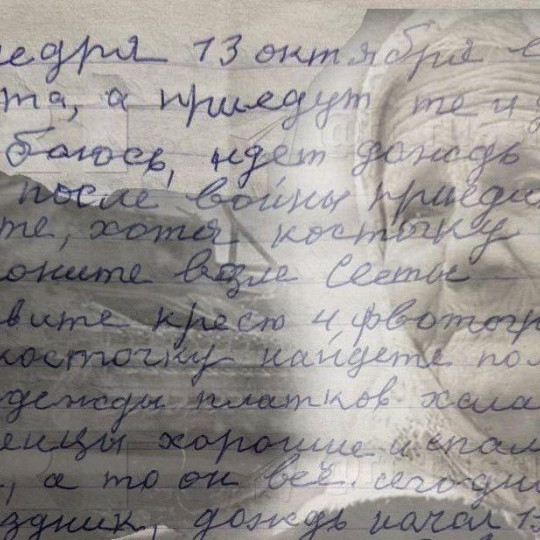 недря 13 октября в
та, а приедут те и д
боюсь, идет дождь
после войны приеди
те, хотя косточку
оните возле Сесты
вите крест и фвотогр
косточку найдете по
дежды платков хала
енцы хорошие и спал
, а то он всё. сегодня
здник, дождь начал